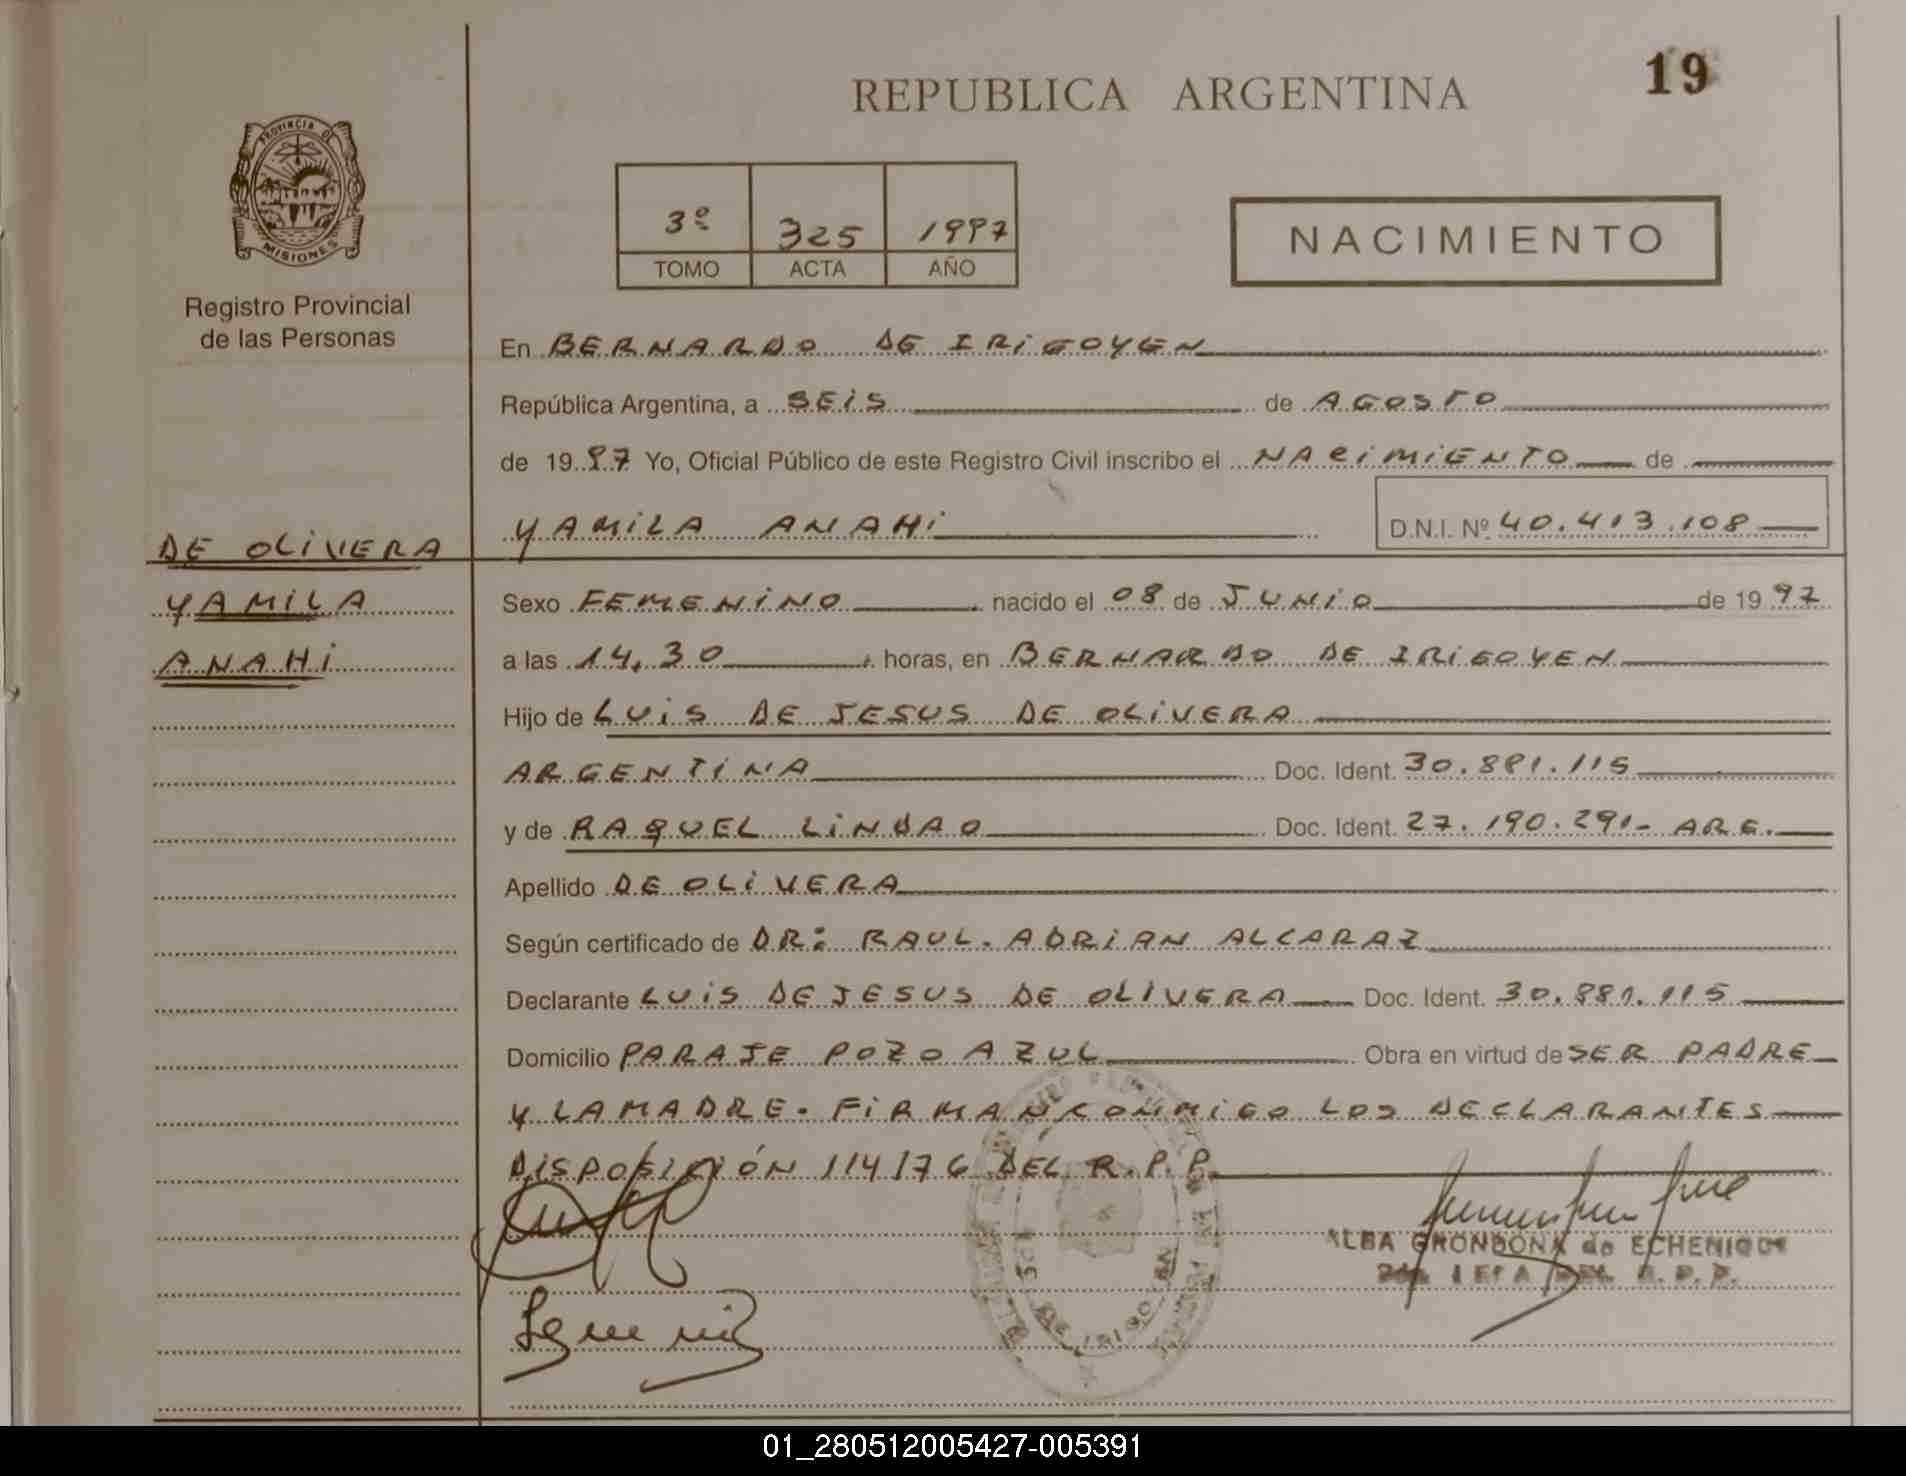 19
REPUBLICA ARGENTINA
PROVINCIA DE
MISIONES
Registro Provincial
de las Personas
3º 325 1997
TOMO ACTA AÑO
NACIMIENTO
En BERNARDO DE IRIGOYEN
República Argentina, a SEIS de AGOSTO
de 19 97 Yo, Oficial Público de este Registro Civil inscribo el NACIMIENTO de
YAMILA ANAHI D.N.I. Nº 40.413.108
DE OLIVERA
YAMILA
ANAHI
Sexo FEMENINO nacido el 08 de JUNIO de 19 97
a las 14,30 horas, en BERNARDO DE IRIGOYEN
Hijo de LUIS DE JESUS DE OLIVERA
ARGENTINA Doc. Ident. 30.881.115
y de RAQUEL LINDAO Doc. Ident. 27.190.291- ARG.
Apellido DE OLIVERA
Según certificado de DR: RAUL. ADRIAN ALCARAZ
Declarante LUIS DE JESUS DE OLIVERA Doc. Ident. 30.881.115
Domicilio PARAJE POZO AZUL Obra en virtud de SER PADRE
Y LA MADRE. FIRMAN CONMIGO LOS DECLARANTES
DISPOSICIÓN 114/76 DEL R.P.P.
ALBA GRONDONA de ECHENIQUE
R.P.P.
01_280512005427-005391